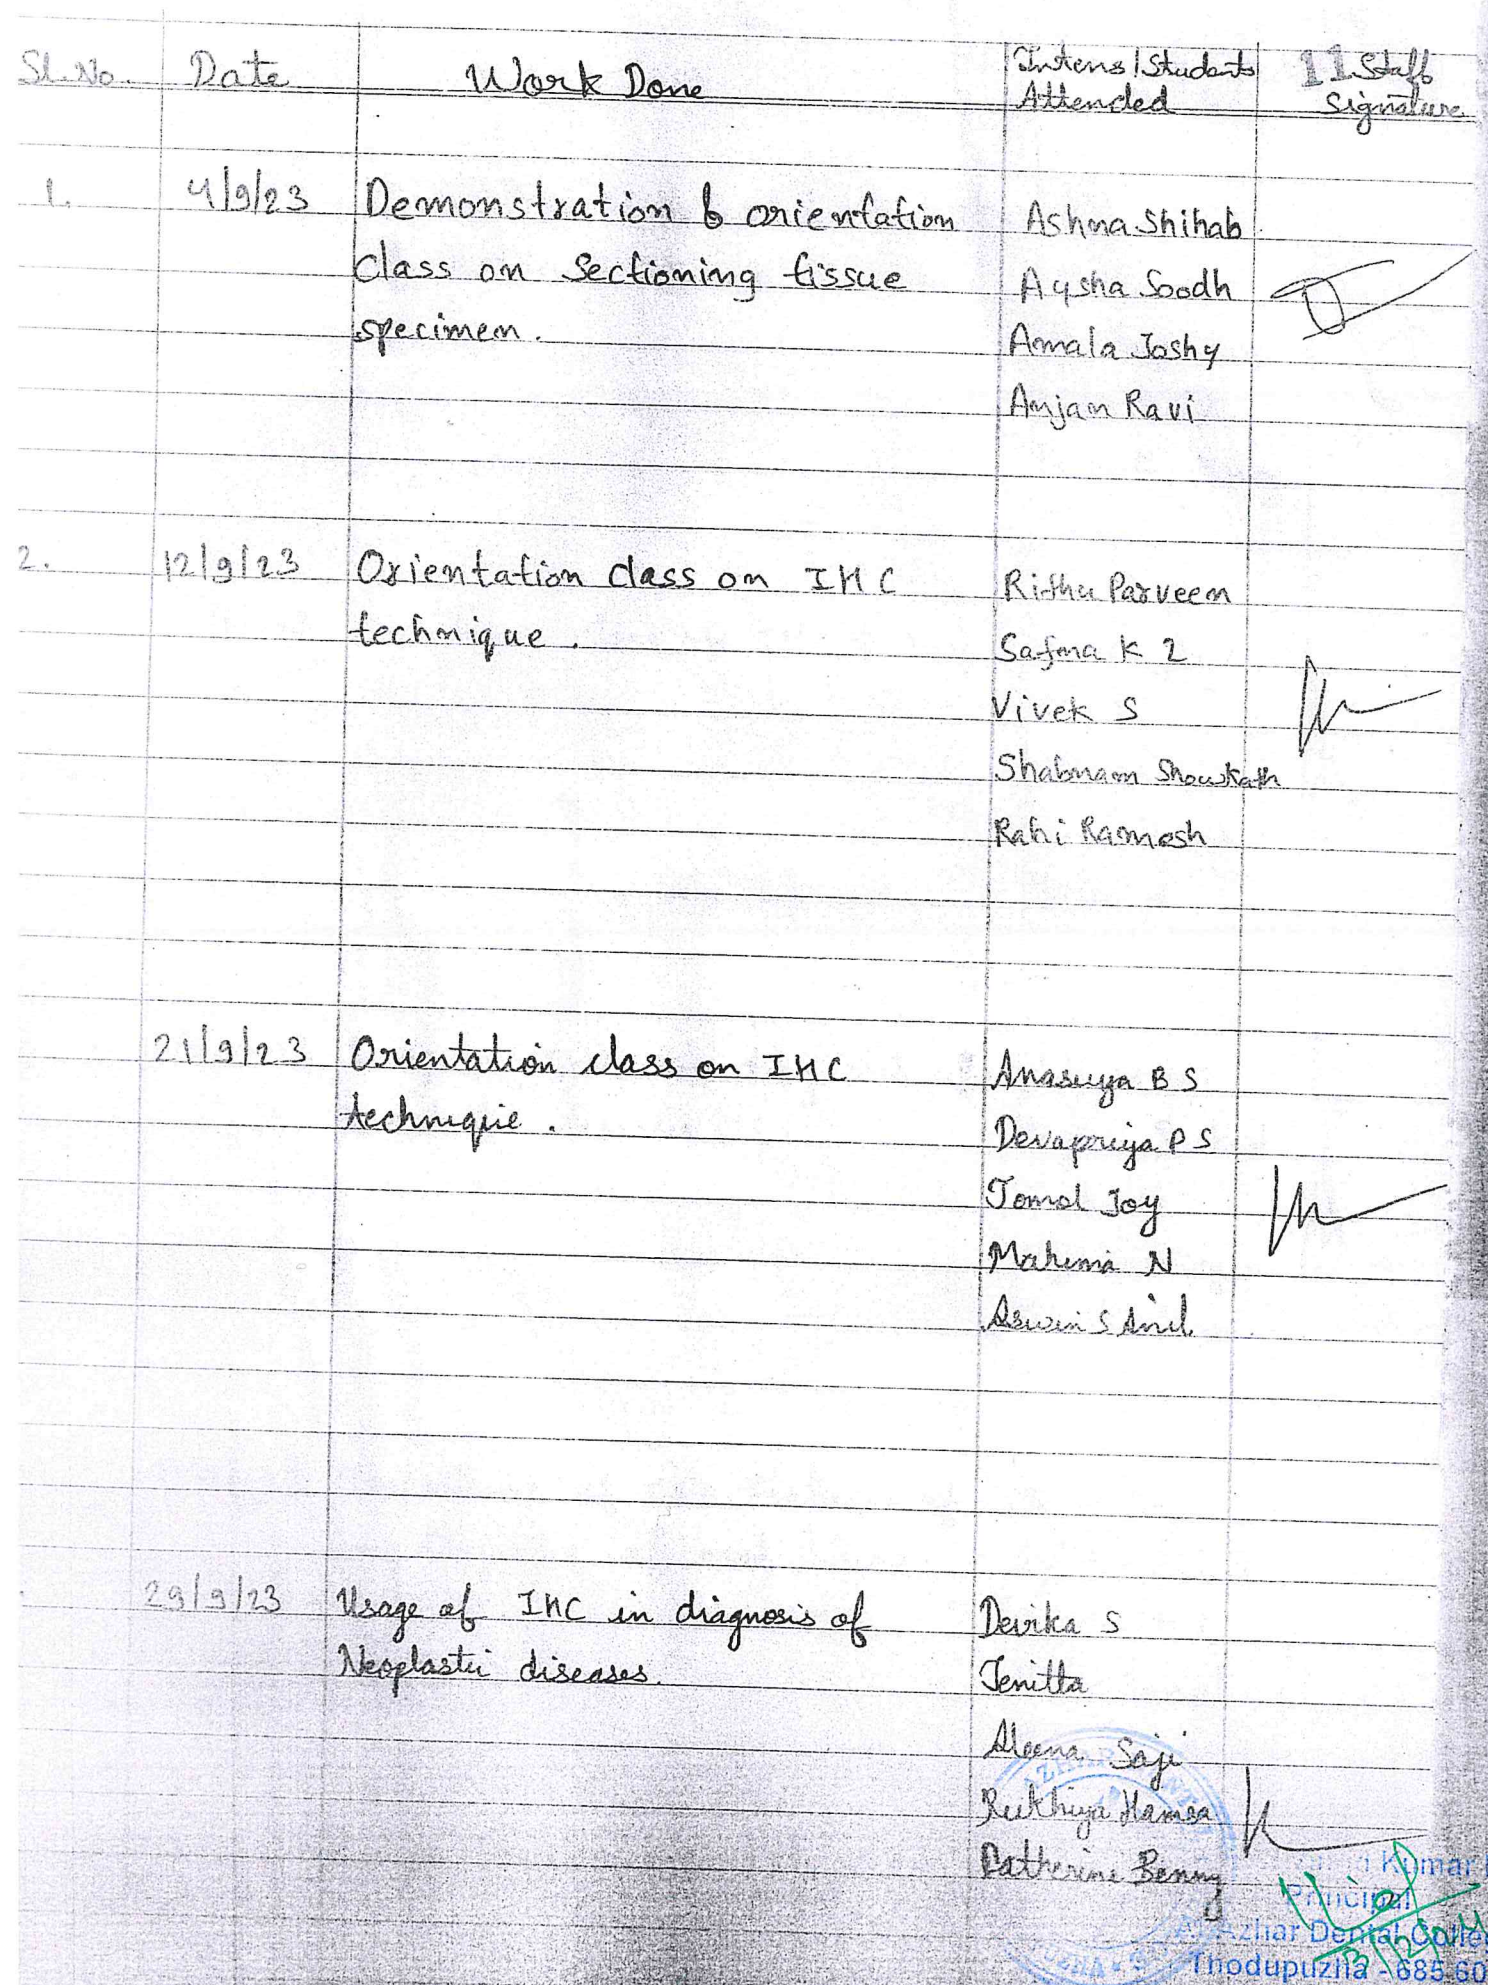 Sl.No. Date Work Done Interns/Students Attended 11 Staff Signature
1. 4/9/23 Demonstration & orientation Ashna Shihab
class on Sectioning tissue Aysha Soodh
specimen. Amala Joshy
Anjan Ravi
2. 12/9/23 Orientation class on IHC Rithu Parveen
technique. Safna K Z
Vivek S
Shabnam Showkath
Rahi Ramesh
21/9/23 Orientation class on IHC Anasuya B S
technique. Devapriya P S
Tomal Joy
Mahima N
Aswin S Anil
29/9/23 Usage of IHC in diagnosis of Devika S
Neoplastic diseases. Jenitta
Aleena Saji
Rukhiya Hamsa
Catherine Benny
Kumar
Principal
Al Azhar Dental Colle
Thodupuzha - 685 60